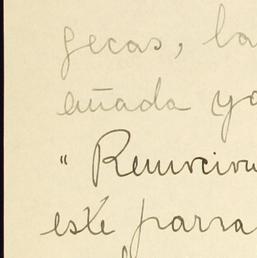 gecas, la
añada yo
" Renunciu
este parra